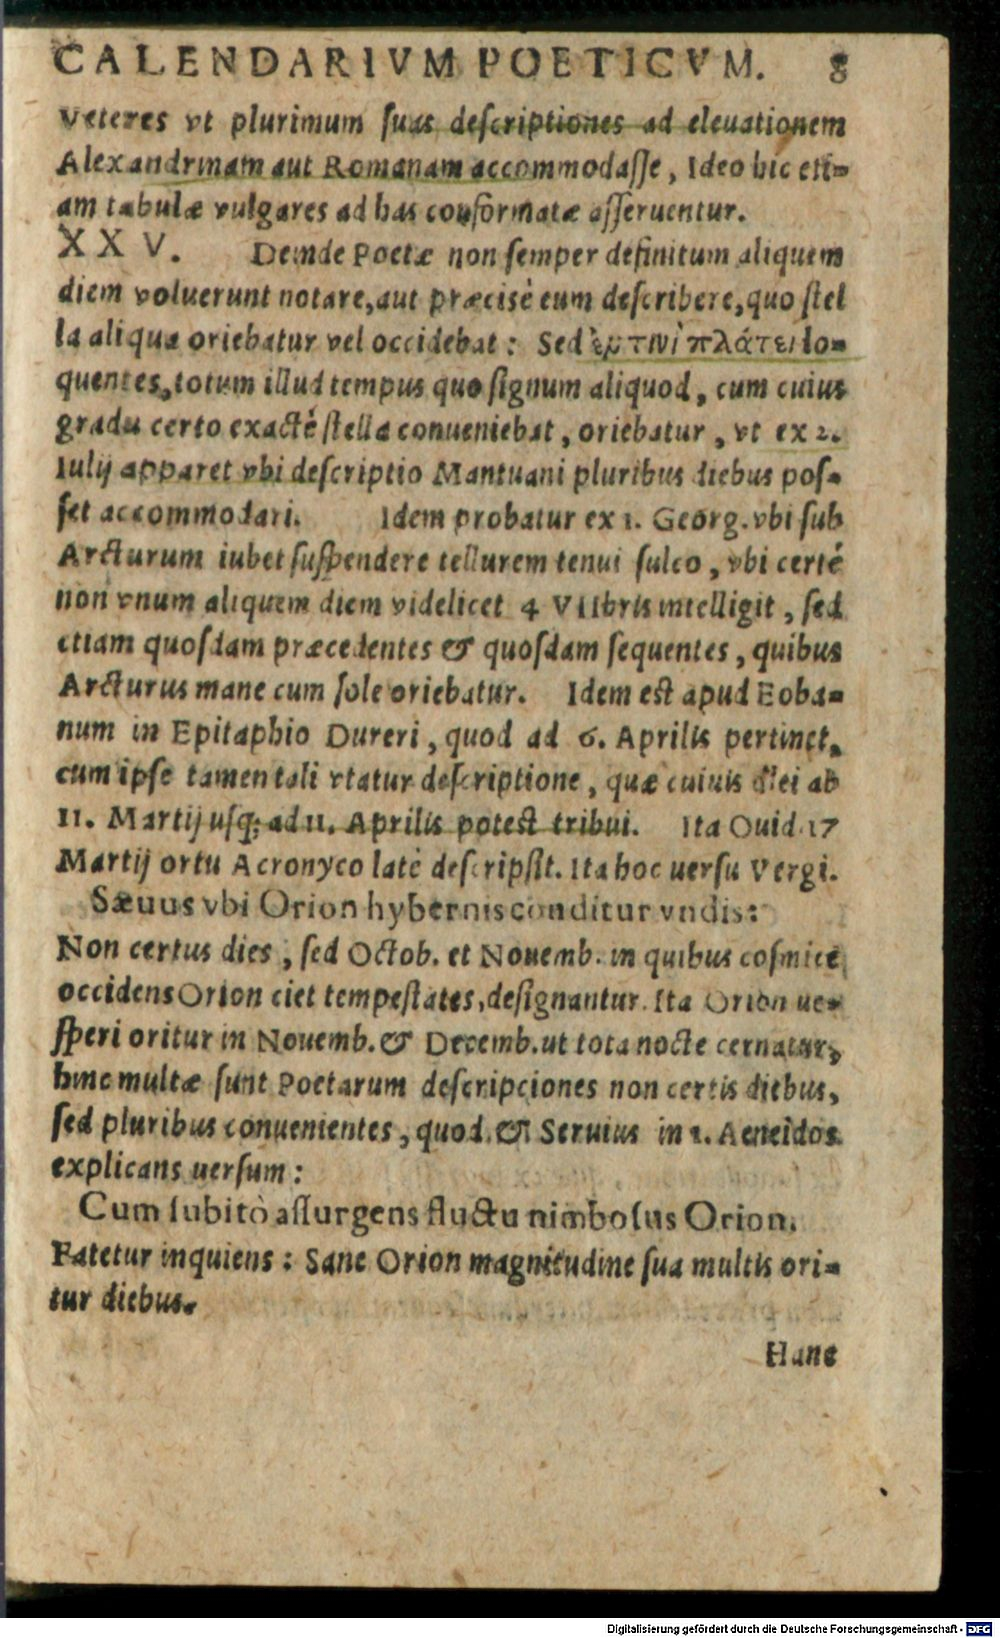 CALENDARIVM POETICVM. 8
Veteres vt plurimum ſuas deſcriptiones ad eleuationem
Alexandrinam aut Romanam accommodaſſe, Ideo hic eti-
am tabulæ vulgares ad has conformatæ aſſeruentur.
XXV. Deinde Poetæ non ſemper definitum aliquem
diem voluerunt notare, aut præcisè eum deſcribere, quo ſtel
la aliqua oriebatur vel occidebat: Sed ἐμ τινὶ πλάτει lo-
quentes, totum illud tempus quo ſignum aliquod, cum cuius
gradu certo exactè ſtella conueniebat, oriebatur, vt ex 2.
Iulij apparet vbi deſcriptio Mantuani pluribus diebus poſ-
ſet accommodari. Idem probatur ex 1. Georg. vbi ſub
Arcturum iubet ſuſpendere tellurem tenui ſulco, vbi certè
non vnum aliquem diem videlicet 4 VIIbris intelligit, ſed
etiam quoſdam præcedentes & quoſdam ſequentes, quibus
Arcturus mane cum ſole oriebatur. Idem est apud Eoba-
num in Epitaphio Dureri, quod ad 6. Aprilis pertinet,
cum ipſe tamen tali vtatur deſcriptione, quæ cuiuis diei ab
11. Martij uſq; ad 11. Aprilis potest tribui. Ita Ouid. 17
Martij ortu Acronyco latè deſcripſit. Ita hoc uerſu Vergi.
Sæuus vbi Orion hybernis conditur vndis:
Non certus dies, ſed Octob. et Nouemb. in quibus coſmicè
occidens Orion ciet tempeſtates, deſignantur. Ita Orion ue-
ſperi oritur in Nouemb. & Decemb. ut tota nocte cernatur,
hinc multæ ſunt Poetarum deſcripciones non certis diebus,
ſed pluribus conuenientes, quod & Seruius in 1. Aeneidos
explicans uerſum:
Cum ſubitò aſſurgens fluctu nimboſus Orion.
Fatetur inquiens: Sane Orion magnitudine ſua multis ori-
tur diebus.
Hanc
Digitalisierung gefördert durch die Deutsche Forschungsgemeinschaft - DFG